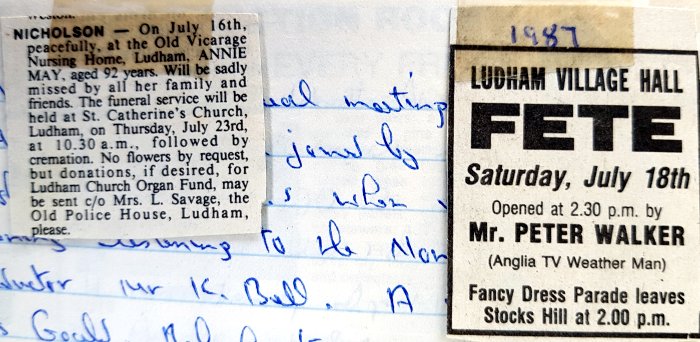 NICHOLSON — On July 16th,
peacefully, at the Old Vicarage
Nursing Home, Ludham, ANNIE
MAY, aged 92 years. Will be sadly
missed by all her family and
friends. The funeral service will be
held at St. Catherine's Church,
Ludham, on Thursday, July 23rd,
at 10.30 a.m., followed by
cremation. No flowers by request,
but donations, if desired, for
Ludham Church Organ Fund, may
be sent c/o Mrs. L. Savage, the
Old Police House, Ludham,
please.
meeting
joined by
when
listening to the
Mr K. Bell. A
1987
LUDHAM VILLAGE HALL
FETE
Saturday, July 18th
Opened at 2.30 p.m. by
Mr. PETER WALKER
(Anglia TV Weather Man)
Fancy Dress Parade leaves
Stocks Hill at 2.00 p.m.